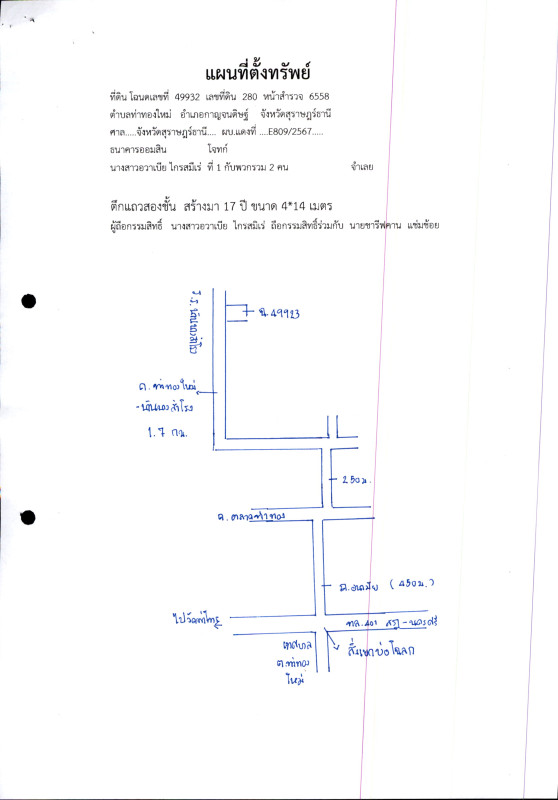 แผนที่ตั้งทรัพย์
ที่ดิน โฉนดเลขที่ 49932 เลขที่ดิน 280 หน้าสำรวจ 6558
ตำบลท่าทองใหม่ อำเภอกาญจนดิษฐ์ จังหวัดสุราษฎร์ธานี
ศาล.....จังหวัดสุราษฎร์ธานี.... ผบ.แดงที่ ....E809/2567.....
ธนาคารออมสิน โจทก์
นางสาวอวาเบีย ไกรสมีเร่ ที่ 1 กับพวกรวม 2 คน จำเลย
ตึกแถวสองชั้น สร้างมา 17 ปี ขนาด 4*14 เมตร
ผู้ถือกรรมสิทธิ์ นางสาวอวาเบีย ไกรสมิเร่ ถือกรรมสิทธิ์ร่วมกับ นายซารีฟคาน แช่มช้อย
ถ. ท่าทองใหม่
1.7 กม.
250 ม.
ถ. ตลาดท่าทอง
(450 ม.)
ทล. 401 สุราษฎร์ - นครศรี
เทศบาล
ต.ท่าทอง
ใหม่
สี่แยกบ่อโฉลก